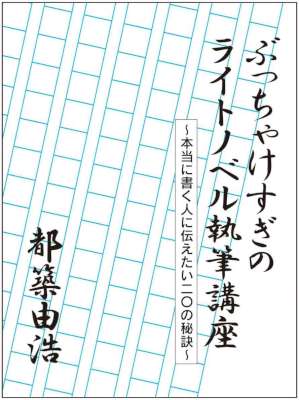 ぶっちゃけすぎの
ライトノベル執筆講座
～本当に書く人に伝えたい二〇の秘訣～
都築由浩